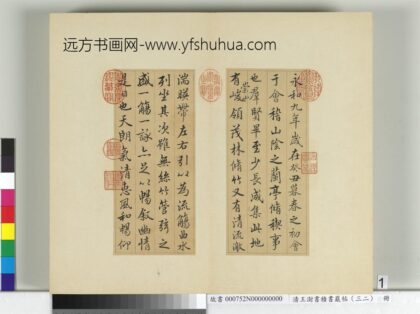 远方书画网-www.yfshuhua.com
永和九年歲在癸丑暮春之初會
于會稽山陰之蘭亭脩稧事
也群賢畢至少長咸集此地
有崇山峻領茂林脩竹又有清流激
湍暎帶左右引以為流觴曲水
列坐其次雖無絲竹管弦之
盛一觴一詠亦足以暢敘幽情
是日也天朗氣清惠風和暢仰
1
故書 000752N000000000
清王澍書積書巖帖(三二) 冊